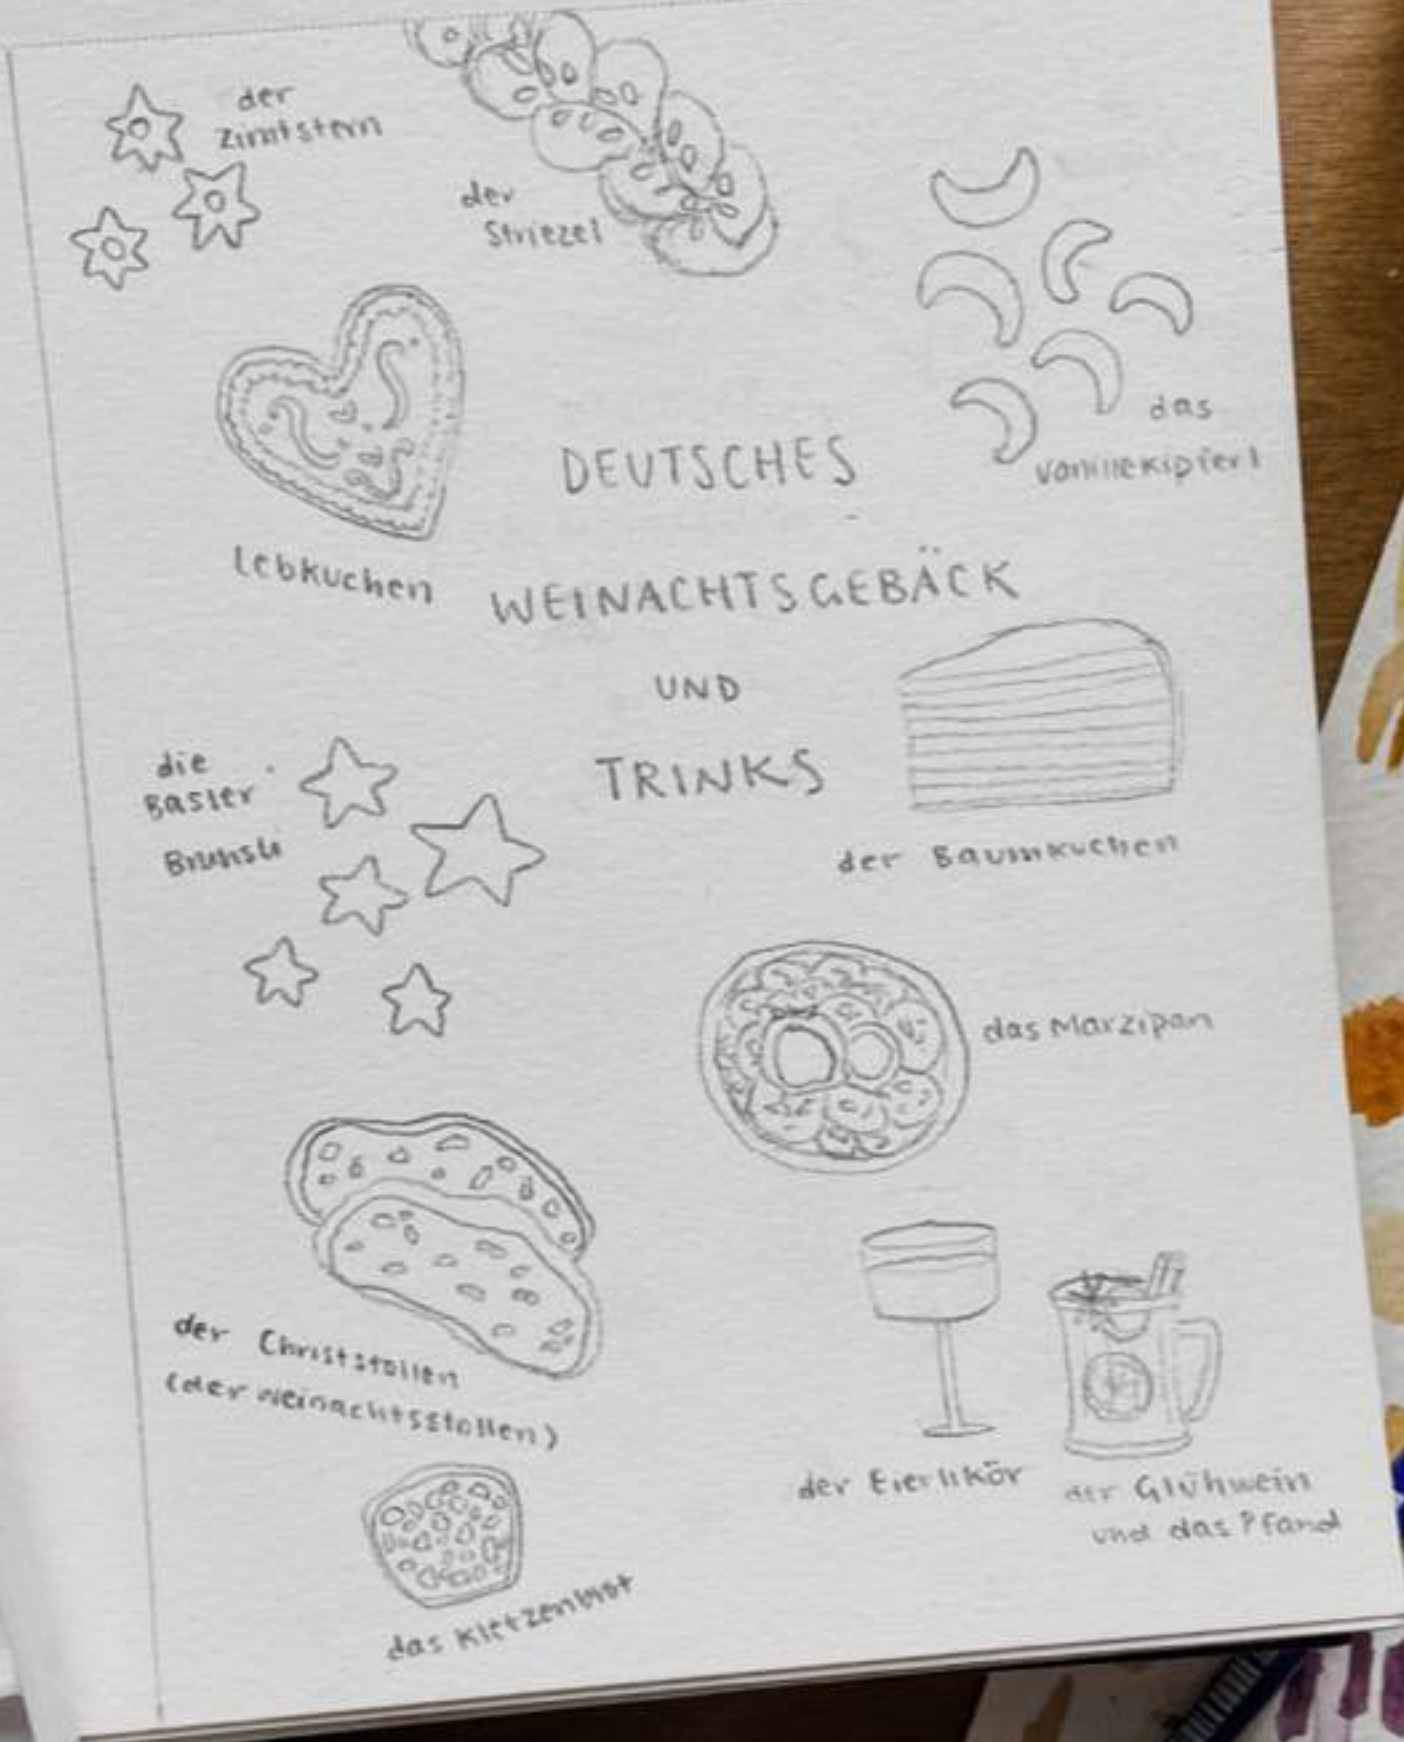 der
Zimtstern
der
Striezel
das
Vanillekipferl
Lebkuchen
DEUTSCHES
WEINACHTSGEBÄCK
UND
TRINKS
die
Basler
Brunsli
der Baumkuchen
das Marzipan
der Christstollen
(der Weinachtsstollen)
der Eierlikör
der Glühwein
und das Pfand
das Kletzenbrot